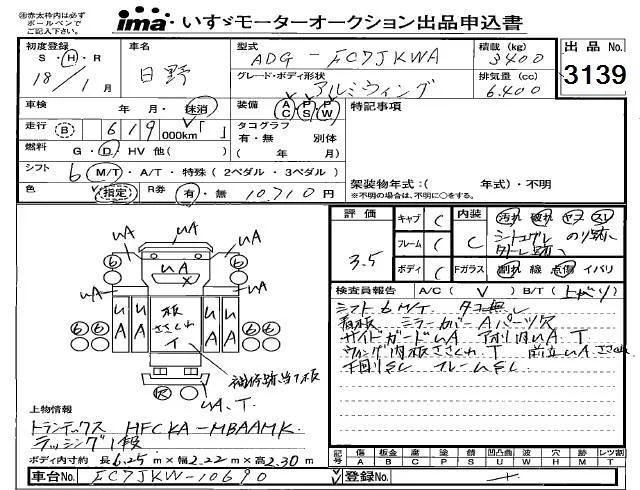 ㊟赤太枠内は必ず
ボールペンで
ご記入下さい。
ima いすゞモーターオークション出品申込書
初度登録 車名 型式 積載 (kg) 出品 No.
S・H・R 日野 ADG - FC7JKWA 3400 3139
18年 1月 グレード・ボディ形状 排気量 (cc)
アルミウィング 6.400
車検 年 月・抹消 装備 AC PS PW 特記事項
走行 B 619 000km「 」 タコグラフ
有・無 別体
燃料 G・D・HV 他( ) ( 年 月)
シフト 6 M/T・A/T・特殊 (2ペダル・3ペダル) 架装物年式:( 年式)・不明
色 指定 R券 有・無 10710円 ※不明の場合は、不明に○をする。
評価 キャブ C 内装 汚れ 破れ ヤヌ スレ
3.5 フレーム C C シートコゲ穴 のり跡
ボディ C Fガラス 割れ 線 点傷 イバリ
検査員報告 A/C ( V ) B/T (上がり)
シフト6M/T. タコ無し
看板 ミラーカバーAパーツ欠
サイドガードUA アオリ内UA.T
ウィング内板ささくれ.T 前立UA.ささくれ
下回りS.C フレームS.C
UA UA UA
UA
UA UA
UA UA 床板ささくれT UA UA
補修跡当て板
UA.T
上物情報
トランテックス HFCKA-MBAAMK
ラッシング1段
ボディ内寸約 長6.25m×幅2.22m×高2.30m
記号 傷 板金 腐 塗 錆 凹凸曲 波 穴 跡 レツ割
A B C P S U W H M T
車台No. FC7JKW-10690 登録No.